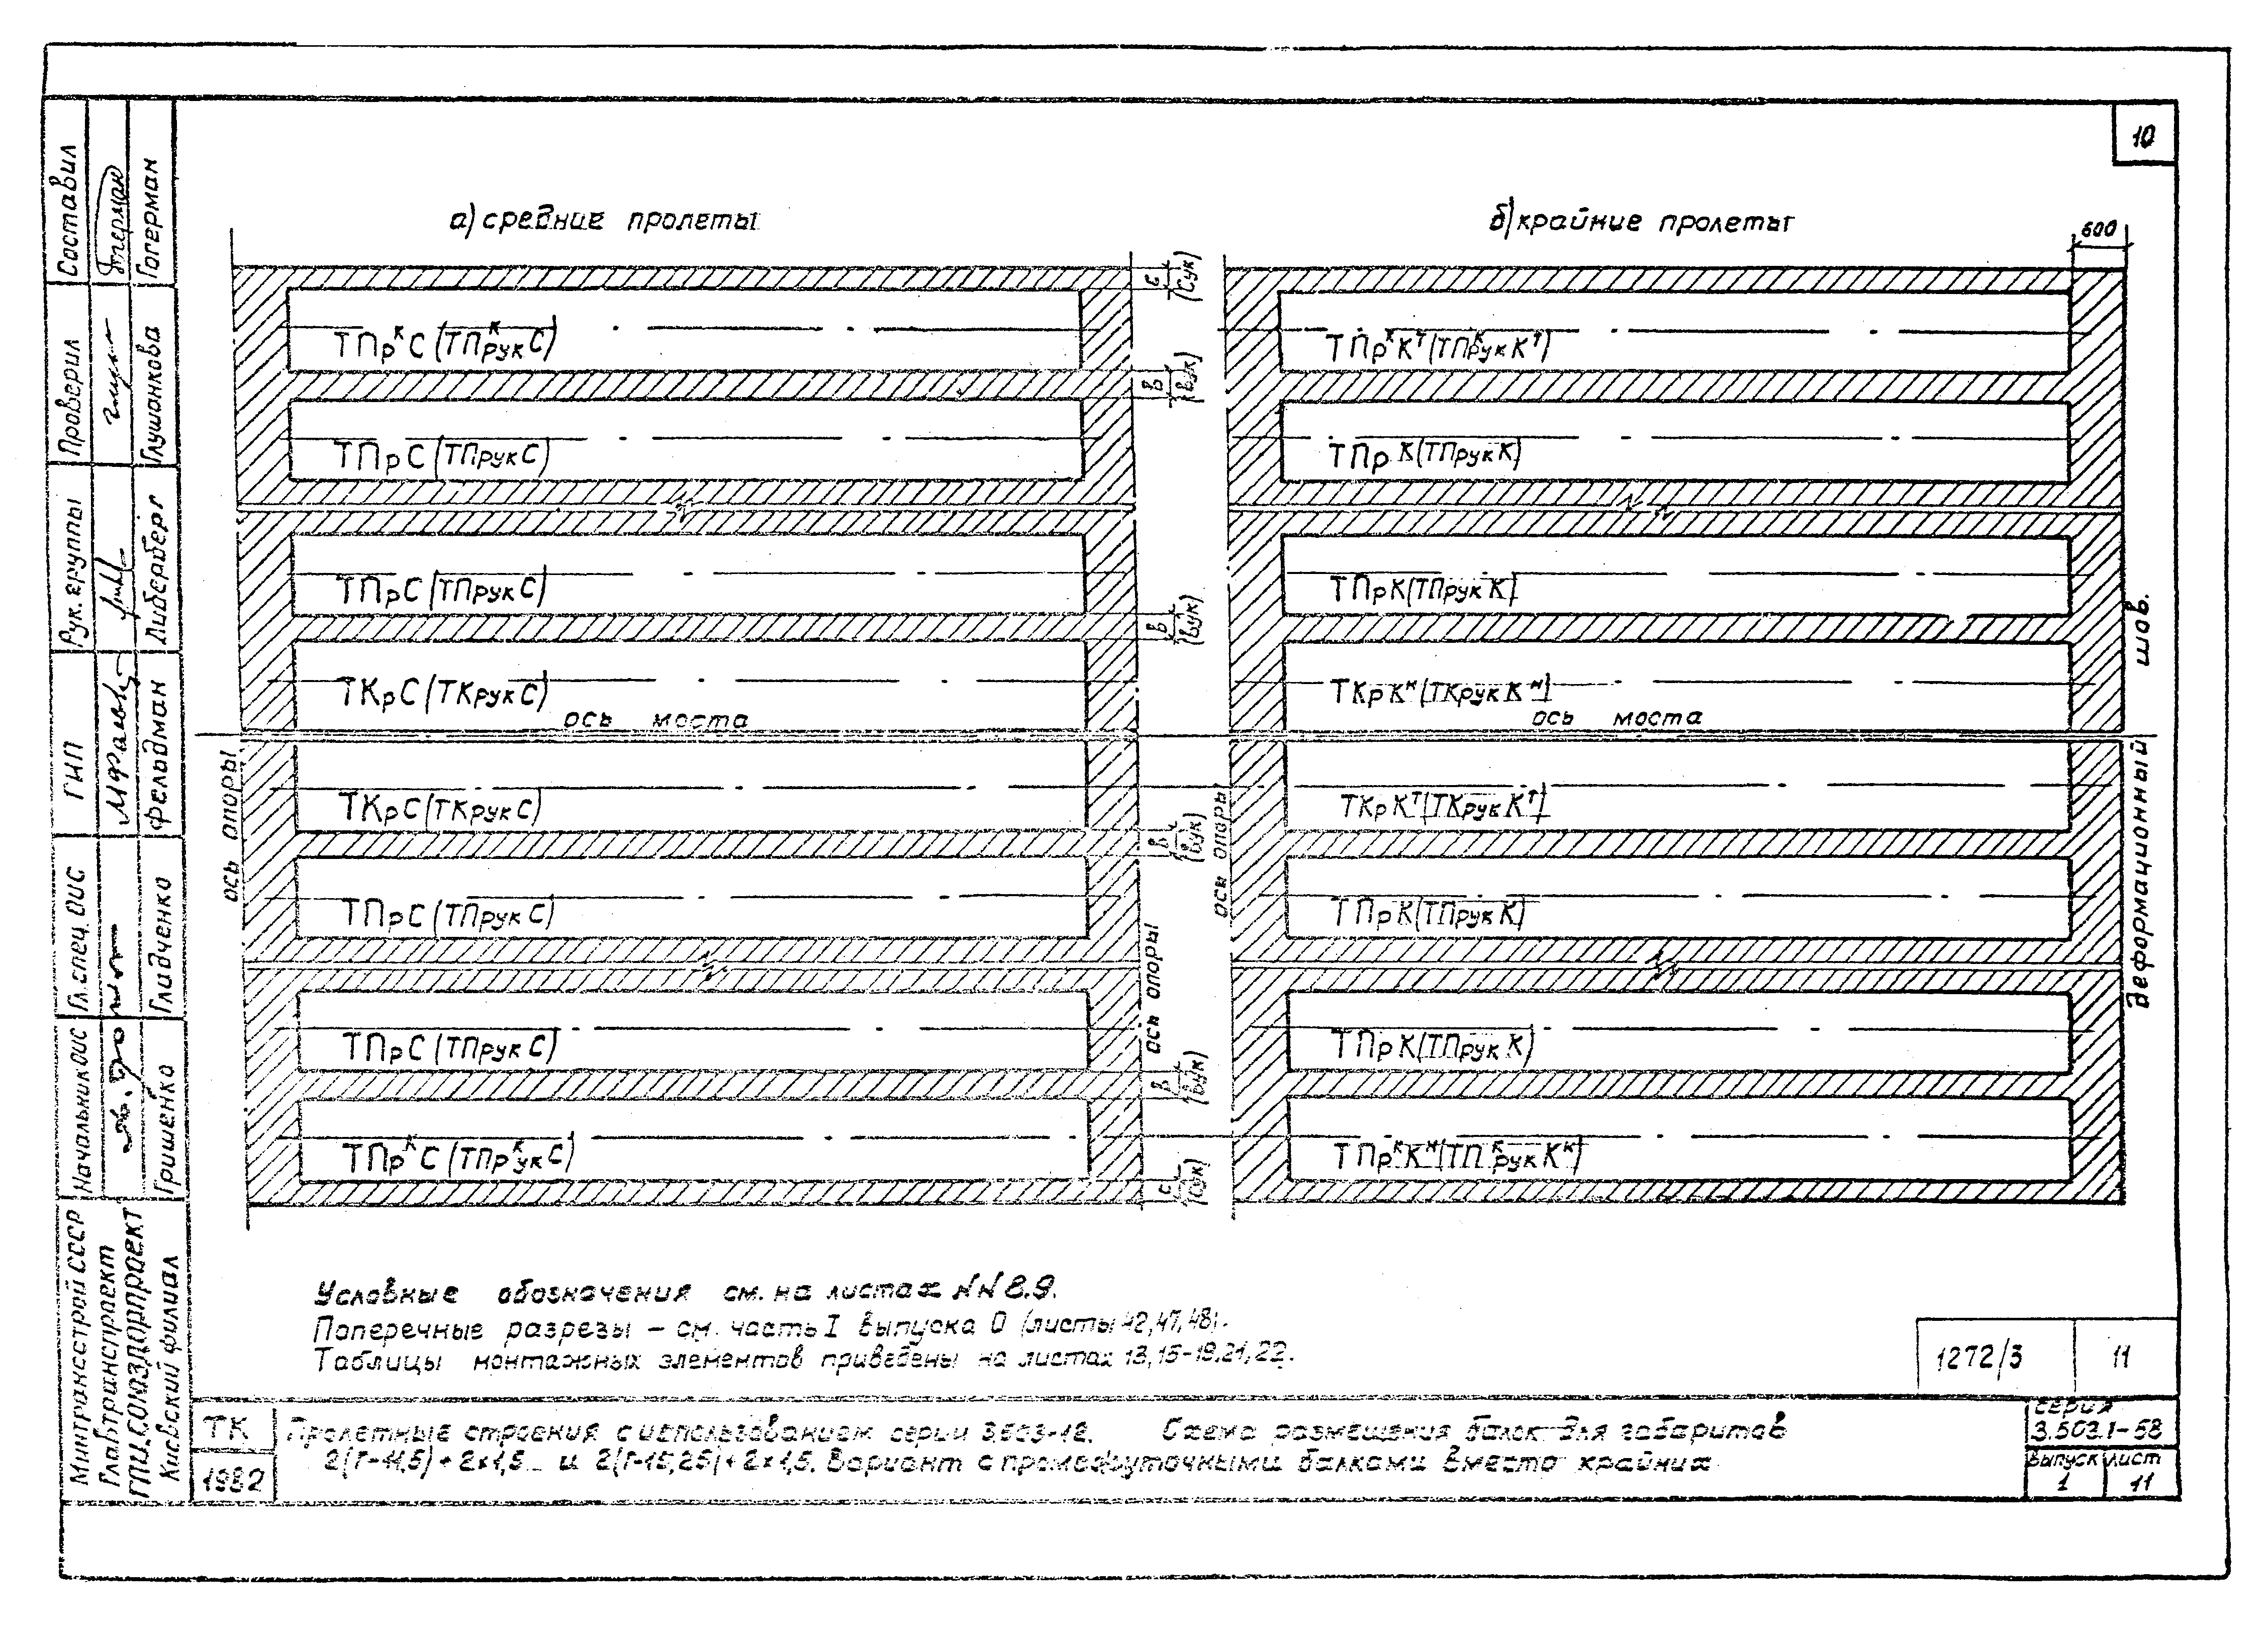 10
а) средние пролеты
б) крайние пролеты
600
ТПрᴷС (ТПᴷрукС)
с (Сук)
ТПрᴷКᵀ (ТПᴷрукКᵀ)
в (вук)
ТПрС (ТПрукС)
ТПрК (ТПрукК)
ТПрС (ТПрукС)
ТПрК (ТПрукК)
в (вук)
ТКрС (ТКрукС)
ТКрКᴴ (ТКрукКᴴ)
ось моста
ось моста
ТКрС (ТКрукС)
ТКрКᵀ (ТКрукКᵀ)
в (вук)
ТПрС (ТПрукС)
ТПрК (ТПрукК)
ТПрС (ТПрукС)
ТПрК (ТПрукК)
в (вук)
ТПрᴷС (ТПрᴷукС)
ТПрᴷКᴴ (ТПᴷрукКᴴ)
с (Сук)
ось опоры
ось опоры
ось опоры
деформационный шов.
Условные обозначения см. на листах NN 8.9.
Поперечные разрезы – см. часть I выпуска 0 (листы 42,47,48).
Таблицы монтажных элементов приведены на листах 13,15-19,21,22.
1272/3 11
ТК
1982
Пролетные строения с использованием серии 3.503-12. Схема размещения балок для габаритов
2(Г-11,5)+2х1,5 и 2(Г-15,25)+2х1,5. Вариант с промежуточными балками вместо крайних
серия
3.503.1-58
выпуск лист
1 11
Составил Гогерман
Проверил Глушонкова
Рук. группы Либерберг
ГИП Фельдман
Гл. спец. ОИС Глидченко
Начальник ОИС Гришенко
Минтрансстрой СССР
Главтранспроект
ГПИ Союздорпроект
Киевский филиал